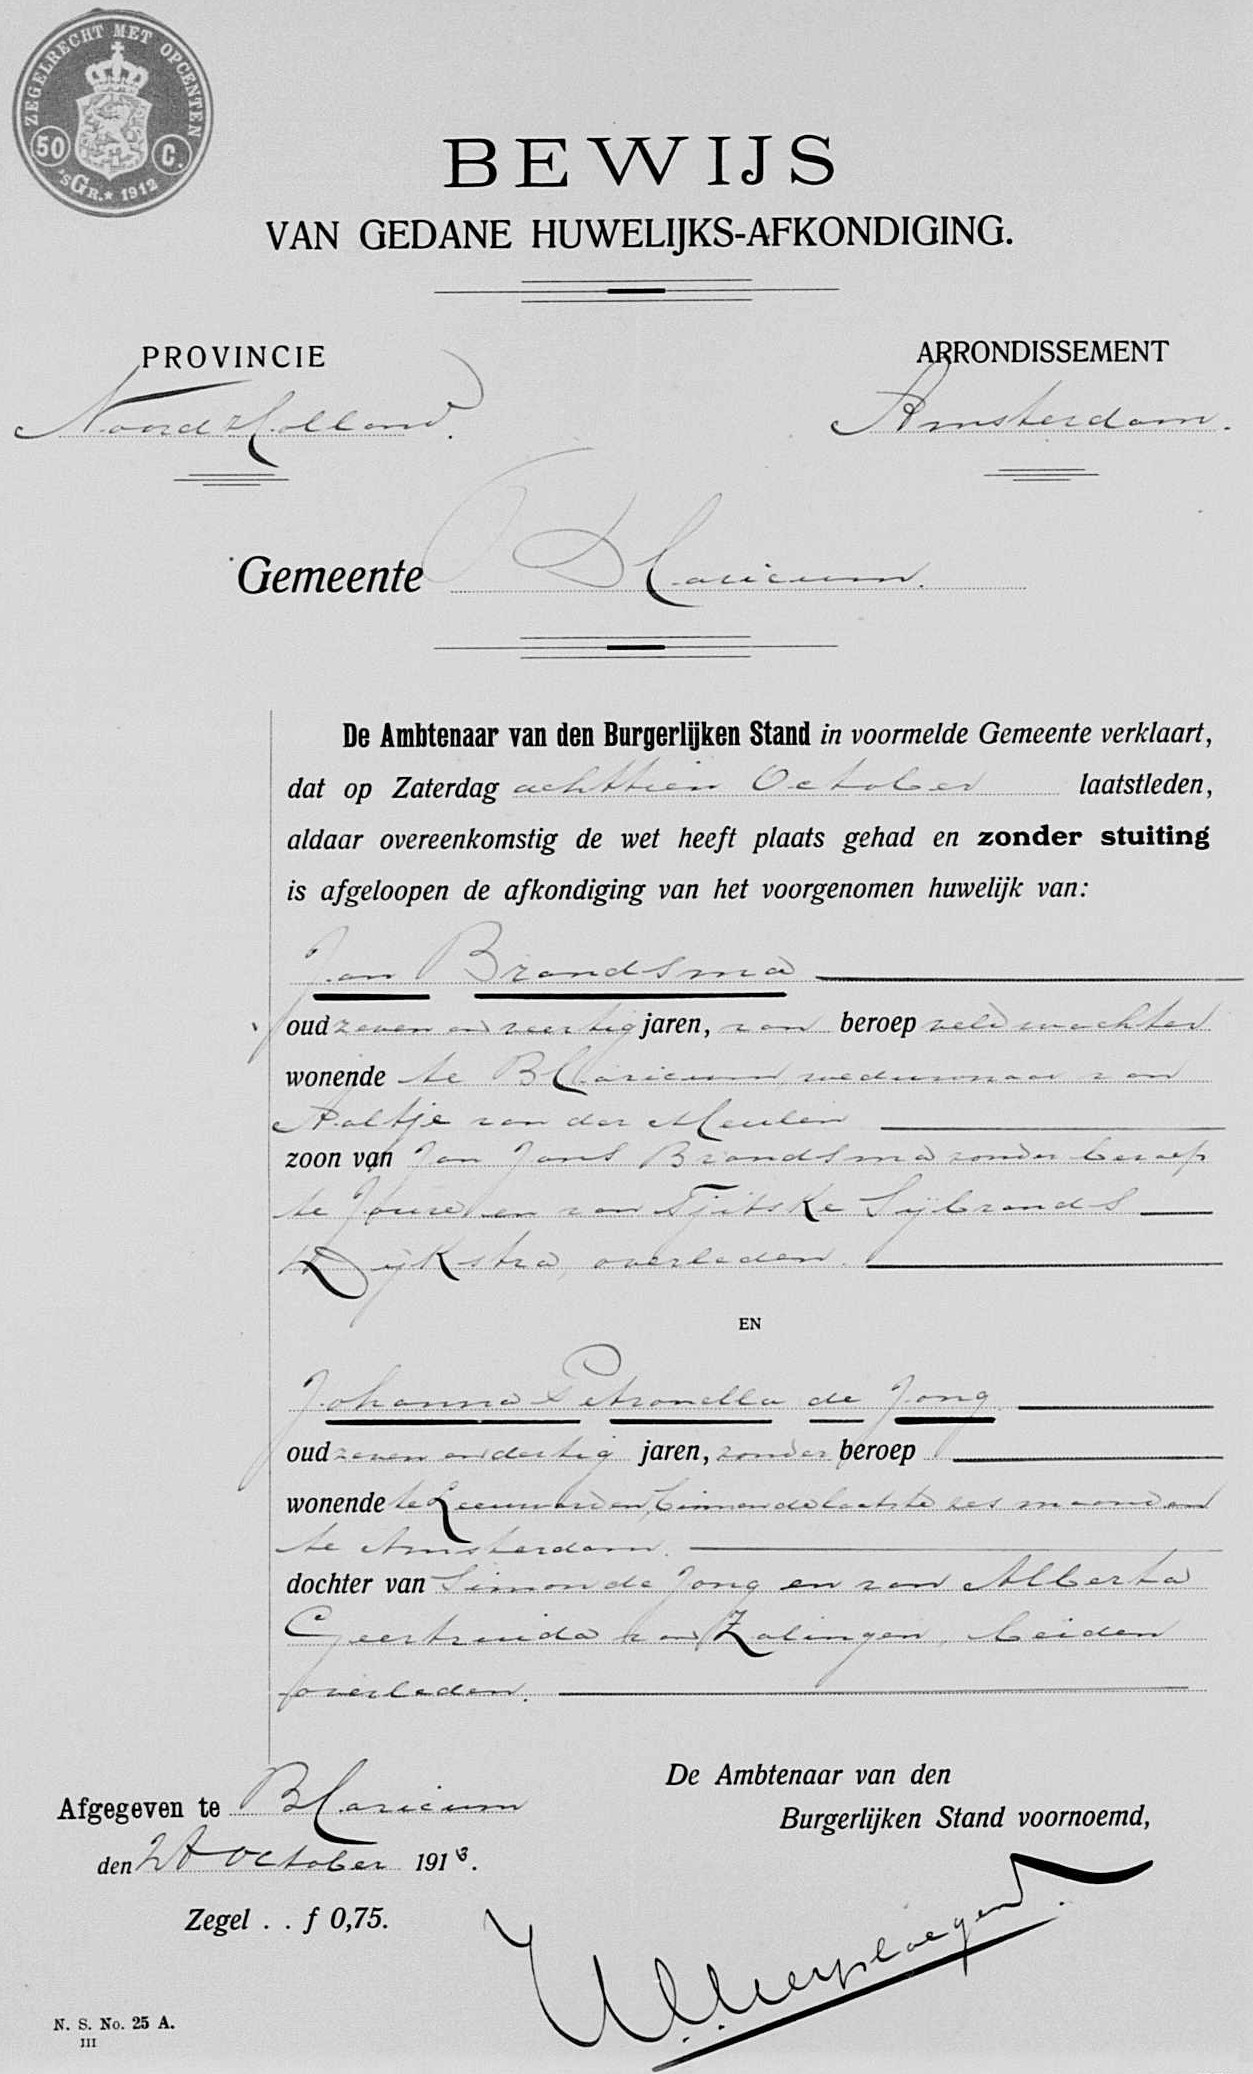 ZEGELRECHT MET OPCENTEN
50 C.
'sGr. * 1912
BEWIJS
VAN GEDANE HUWELIJKS-AFKONDIGING.
PROVINCIE
Noord Holland.
ARRONDISSEMENT
Amsterdam.
Gemeente Blaricum.
De Ambtenaar van den Burgerlijken Stand in voormelde Gemeente verklaart,
dat op Zaterdag achttien October laatstleden,
aldaar overeenkomstig de wet heeft plaats gehad en zonder stuiting
is afgeloopen de afkondiging van het voorgenomen huwelijk van:
Jan Brandsma
oud zeven en veertig jaren, van beroep veldwachter
wonende te Blaricum, weduwnaar van
Aaltje van der Meulen
zoon van Jan Jans Brandsma zonder beroep
te Joure en van Tjitske Sijbrands
Dijkstra, overleden.
EN
Johanna Petronella de Jong
oud zeven en dertig jaren, zonder beroep
wonende te Leeuwarden, binnen de laatste zes maanden
te Amsterdam.
dochter van Simon de Jong en van Alberta
Geertruida van Zalingen, beiden
overleden.
Afgegeven te Blaricum
den October 1913.
Zegel . . f 0,75.
De Ambtenaar van den
Burgerlijken Stand voornoemd,
N. S. No. 25 A.
III